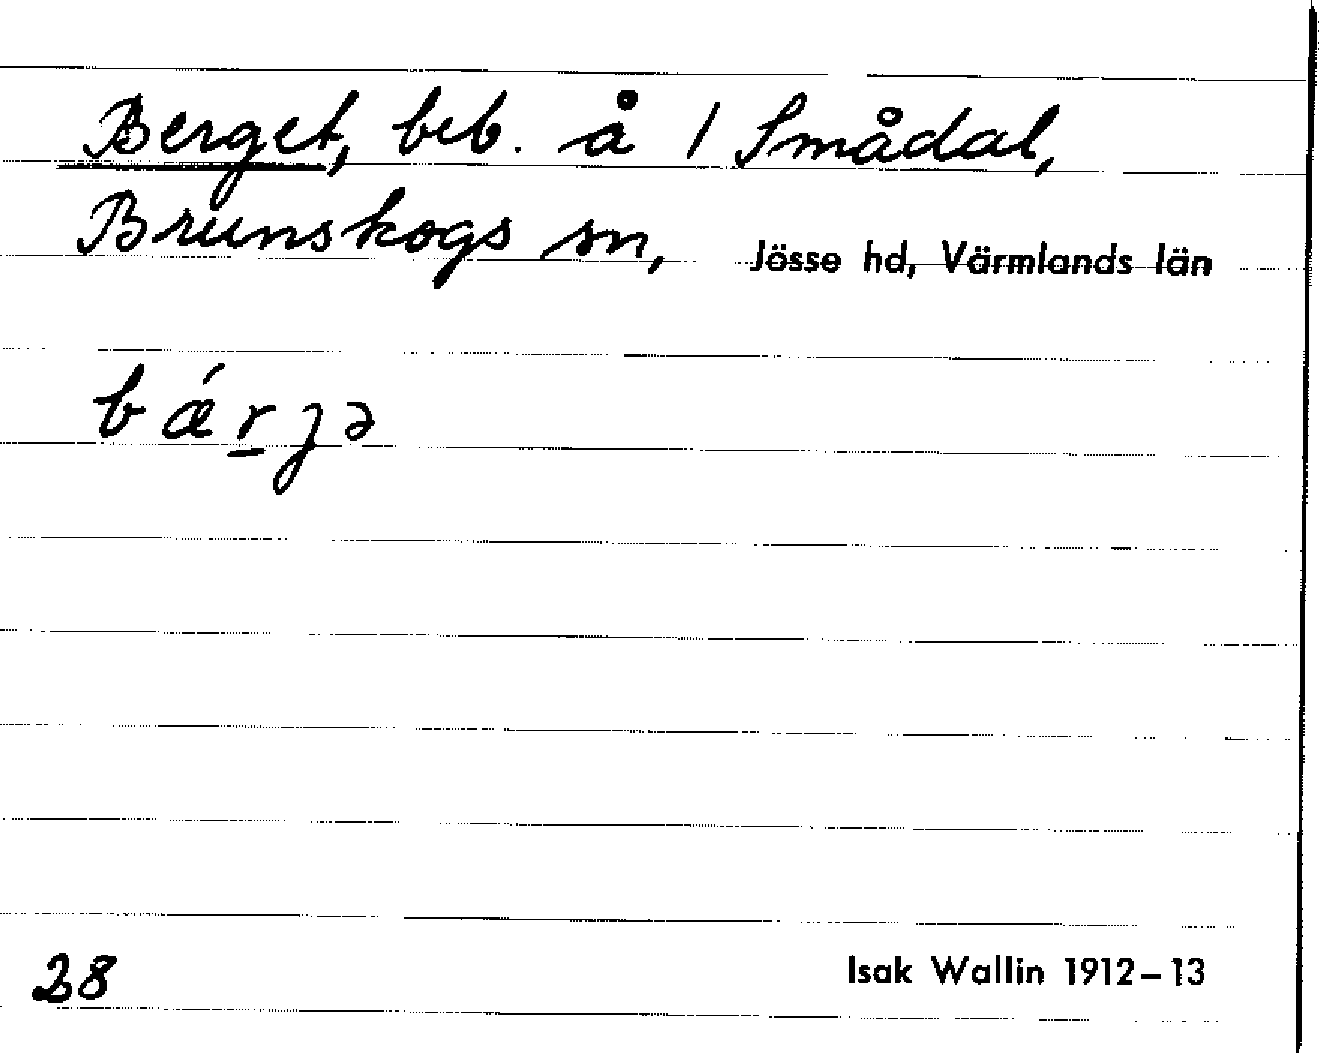 Berget, beb. å 1 Smådal,
Brunskogs sn, Jösse hd, Värmlands län
bǽr̲ȷə
28 Isak Wallin 1912–13